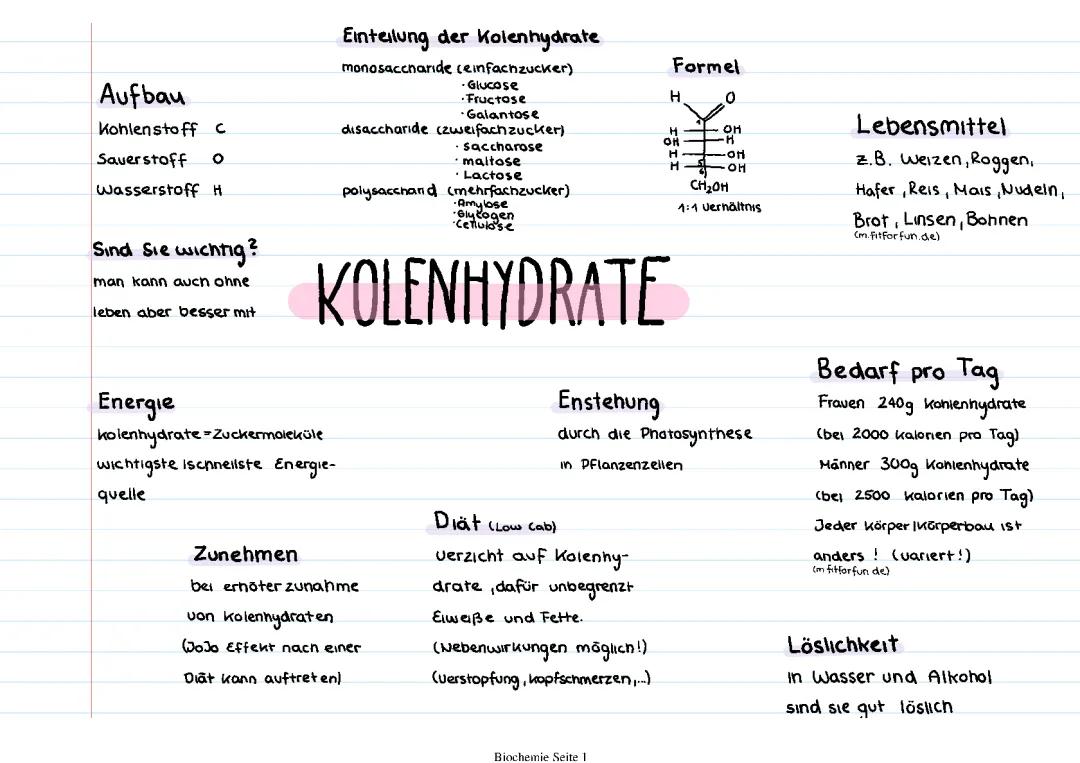 Einteilung der Kolenhydrate
monosaccharide (einfachzucker)
· Glucose
· Fructose
· Galantose
disaccharide (zweifachzucker)
· saccharose
· maltose
· Lactose
polysaccharid (mehrfachzucker)
· Amylose
· Glykogen
· Cellulose
Formel
H O
1
H OH
OH H
H OH
H 5 OH
CH₂OH
1:1 Verhältnis
Aufbau
Kohlenstoff C
Sauerstoff O
Wasserstoff H
Lebensmittel
z.B. Weizen, Roggen,
Hafer, Reis, Mais, Nudeln,
Brot, Linsen, Bohnen
(m.fitforfun.de)
Sind Sie wichtig?
man kann auch ohne
leben aber besser mit
KOLENHYDRATE
Energie
Kolenhydrate = Zuckermoleküle
wichtigste/schnellste Energie-
quelle
Enstehung
durch die Photosynthese
in Pflanzenzellen
Bedarf pro Tag
Frauen 240g Kohlenhydrate
(bei 2000 Kalorien pro Tag)
Männer 300g Kohlenhydrate
(bei 2500 Kalorien pro Tag)
Jeder Körper/Körperbau ist
anders! (variert!)
(m.fitforfun.de)
Zunehmen
bei erhöter zunahme
von Kolenhydraten
(JoJo Effekt nach einer
Diät kann auftreten)
Diät (Low Cab)
Verzicht auf Kolenhy-
drate, dafür unbegrenzt
Eiweiße und Fette.
(Nebenwirkungen möglich!)
(Verstopfung, Kopfschmerzen,...)
Löslichkeit
in Wasser und Alkohol
sind sie gut löslich
Biochemie Seite 1